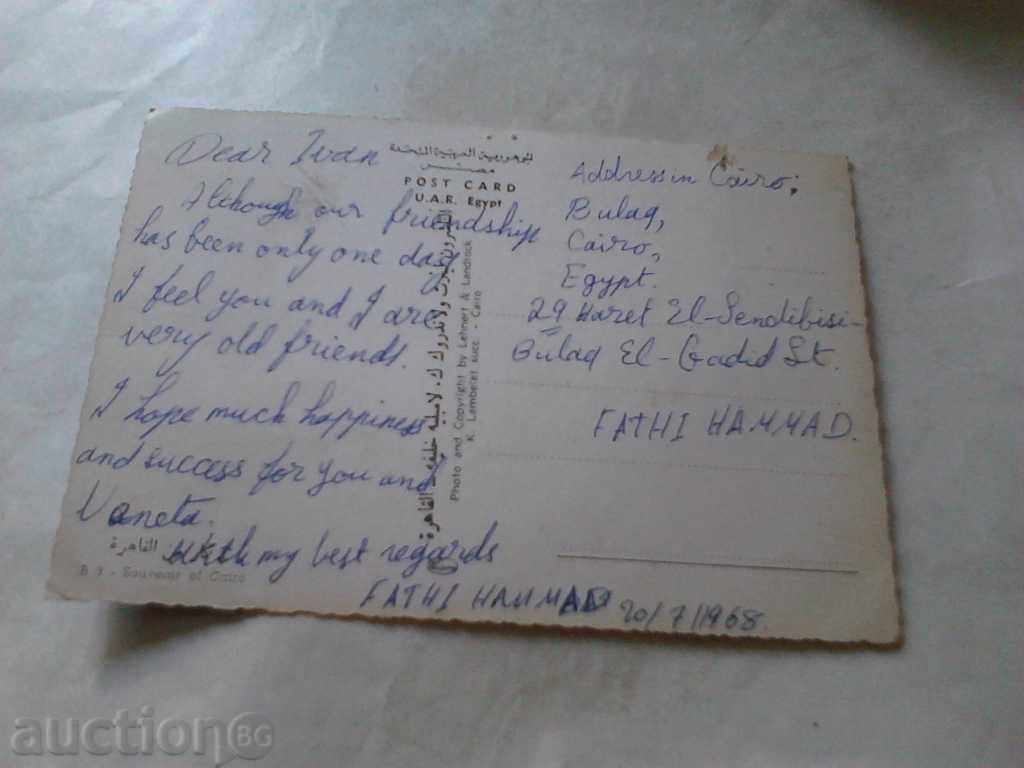 Dear Ivan
Although our friendship
has been only one day
I feel you and I are
very old friends.
I hope much happiness
and success for you and
Vaneta.
with my best regards
FATHI HAMMAD 20/7/1968.
الجمهورية العربية المتحدة
مصر
POST CARD
U.A.R. Egypt
لاندروك ك. لامبليه خليفة القاهرة
Photo and Copyright by Lehnert & Landrock
K. Lambelet succ. - Cairo
Address in Cairo;
Bulaq,
Cairo,
Egypt.
29 Haret El-Sendibisi-
Bulaq El-Gadid St.
FATHI HAMMAD.
القاهرة
B 9 - Souvenir of Cairo
auction BG